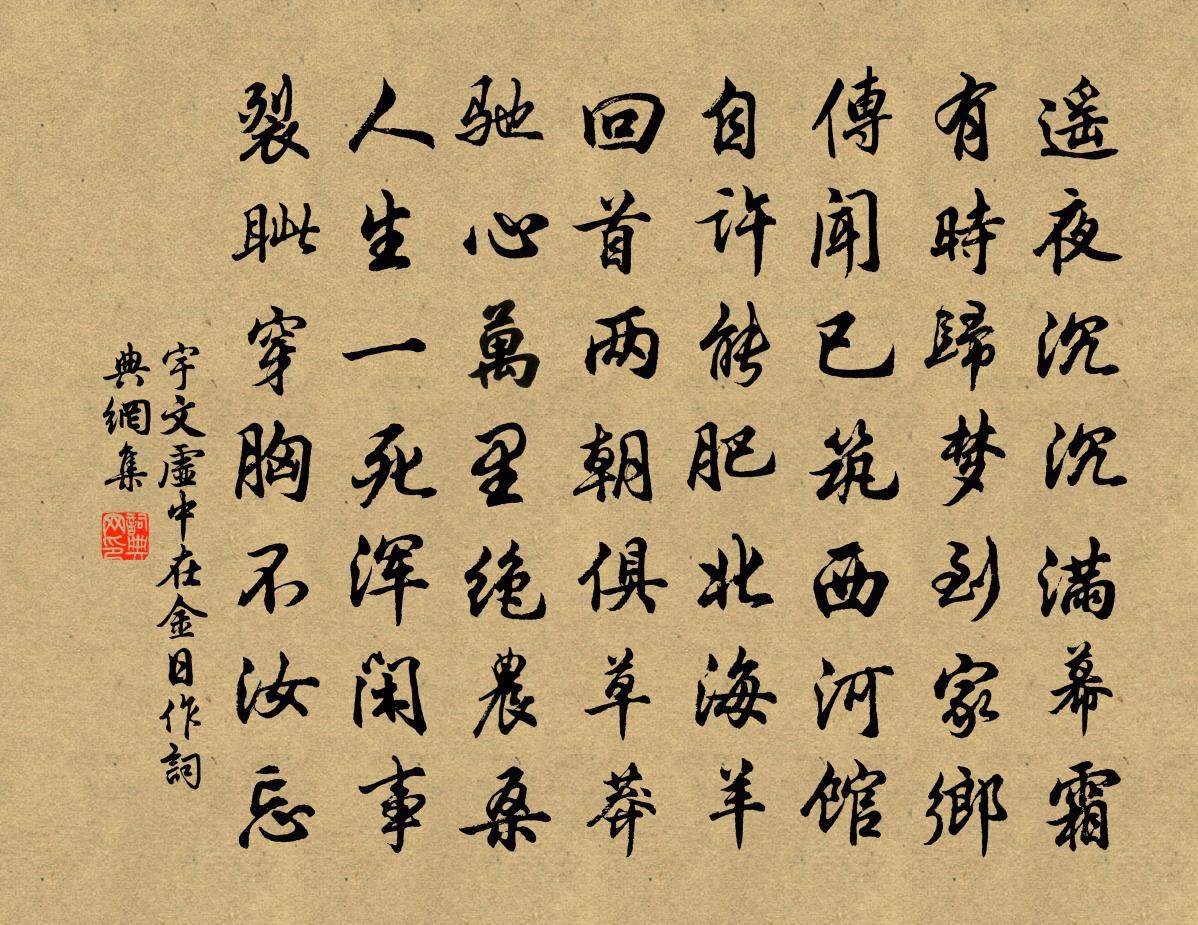 遥夜沉沉满幕霜
有時歸梦到家鄉
傳聞已筑西河馆
自许能肥北海羊
回首两朝俱草莽
驰心萬里绝農桑
人生一死浑闲事
裂眦穿胸不汝忘
宇文虚中在金日作詞
典網集
詞典网印